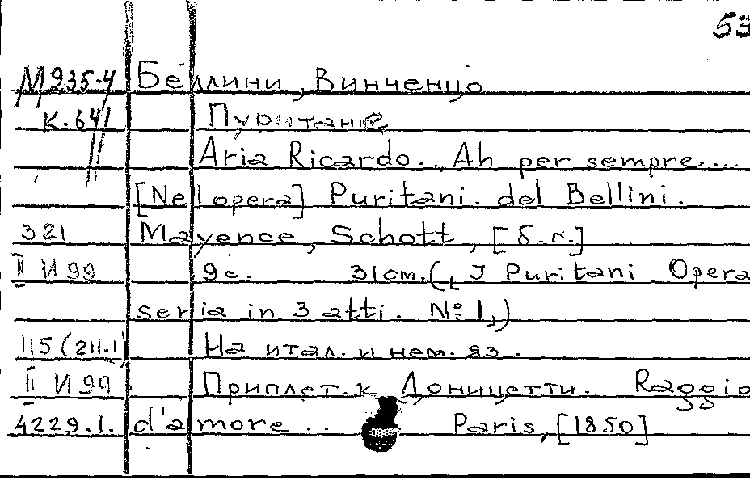 53
М935-4 Беллини, Винченцо
К.641 Пуритане
Aria Ricardo. Ah per sempre....
[Nell opera] Puritani. del Bellini.
321 Mayence, Schott, [б.г.]
II И 99 9с. 31см. („I Puritani Opera
seria in 3 atti. № 1„)
115(211.1) На итал. и нем. яз.
II И 99 Приплет. к Доницетти. Raggio
4229.1. d'amore .. Paris, [1850]